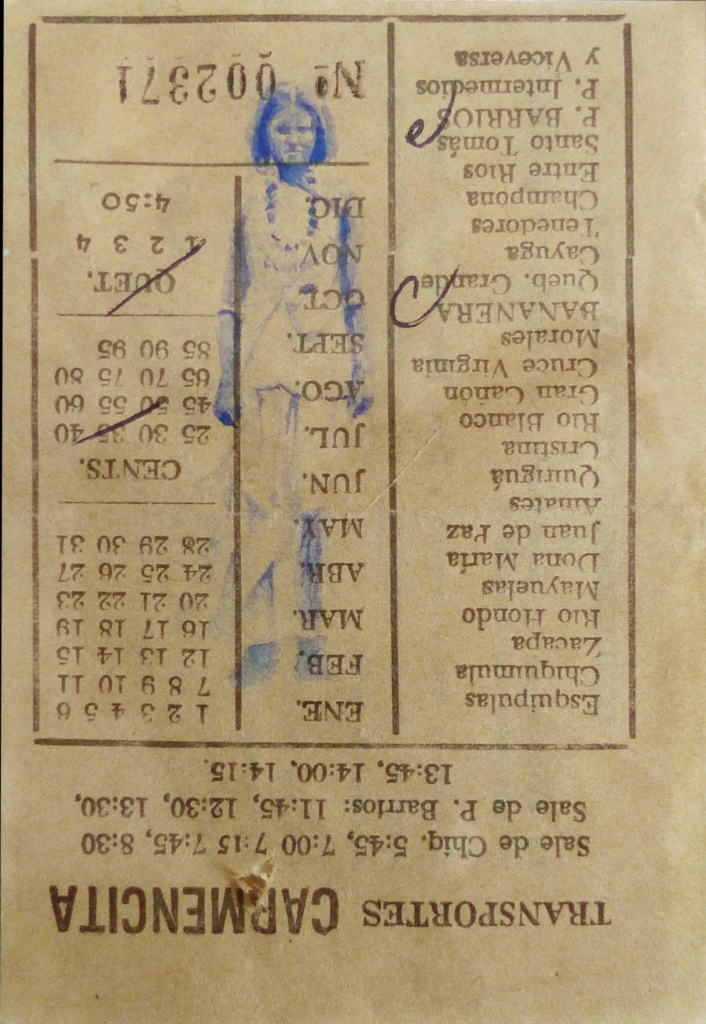 TRANSPORTES CARMENCITA
Sale de Chiq. 5:45, 7:00 7:15 7:45, 8:30
Sale de P. Barrios: 11:45, 12:30, 13:30,
13:45, 14:00, 14:15.
Esquipulas
Chiquimula
Zacapa
Rio Hondo
Mayuelas
Dona María
Juan de Paz
Amates
Quiriguá
Cristina
Rio Blanco
Gran Cañón
Cruce Virginia
Morales
BANANERA
Queb. Grande
Cayuga
Tenedores
Champona
Entre Rios
Santo Tomás
P. BARRIOS
P. Intermedios
y Viceversa
ENE.
FEB.
MAR.
ABR.
MAY.
JUN.
JUL.
AGO.
SEPT.
OCT.
NOV.
DIC.
1 2 3 4 5 6
7 8 9 10 11
12 13 14 15
16 17 18 19
20 21 22 23
24 25 26 27
28 29 30 31
CENTS.
25 30 35 40
45 50 55 60
65 70 75 80
85 90 95
QUET.
1 2 3 4
4:50
Nº 002371